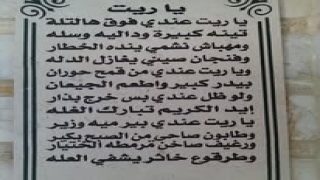 يا ريت
يا ريت عندي فوق هالتلة
تينه كبيرة وداليه وسله
ومهباش نشمي ينده الخطار
وفنجان صيني يغازل الدله
ويا ريت عندي من قمح حوران
بيدر كبير واطعم الجيعان
ولو ظل عندي بس خرج بذار
ايد الكريم تبارك الغله
يا ريت عندي بير ميه وزير
وطابون صاحي من الصبح بكير
ورغيف ساخن مرمطه الختيار
وطرقوع خاثر يشفي العله